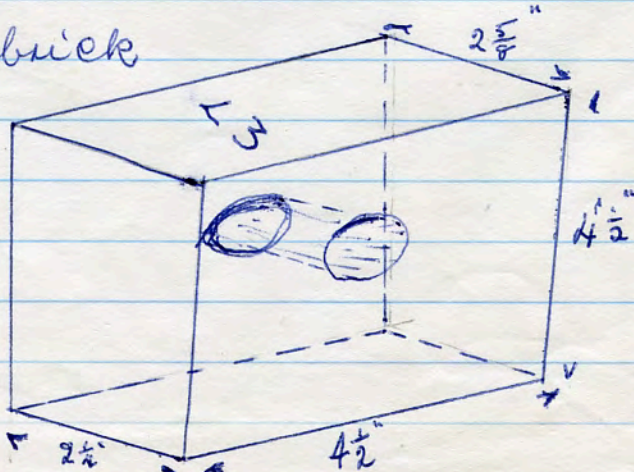 brick
2 5/8"
L3
4 1/2"
2 1/2"
4 1/2"